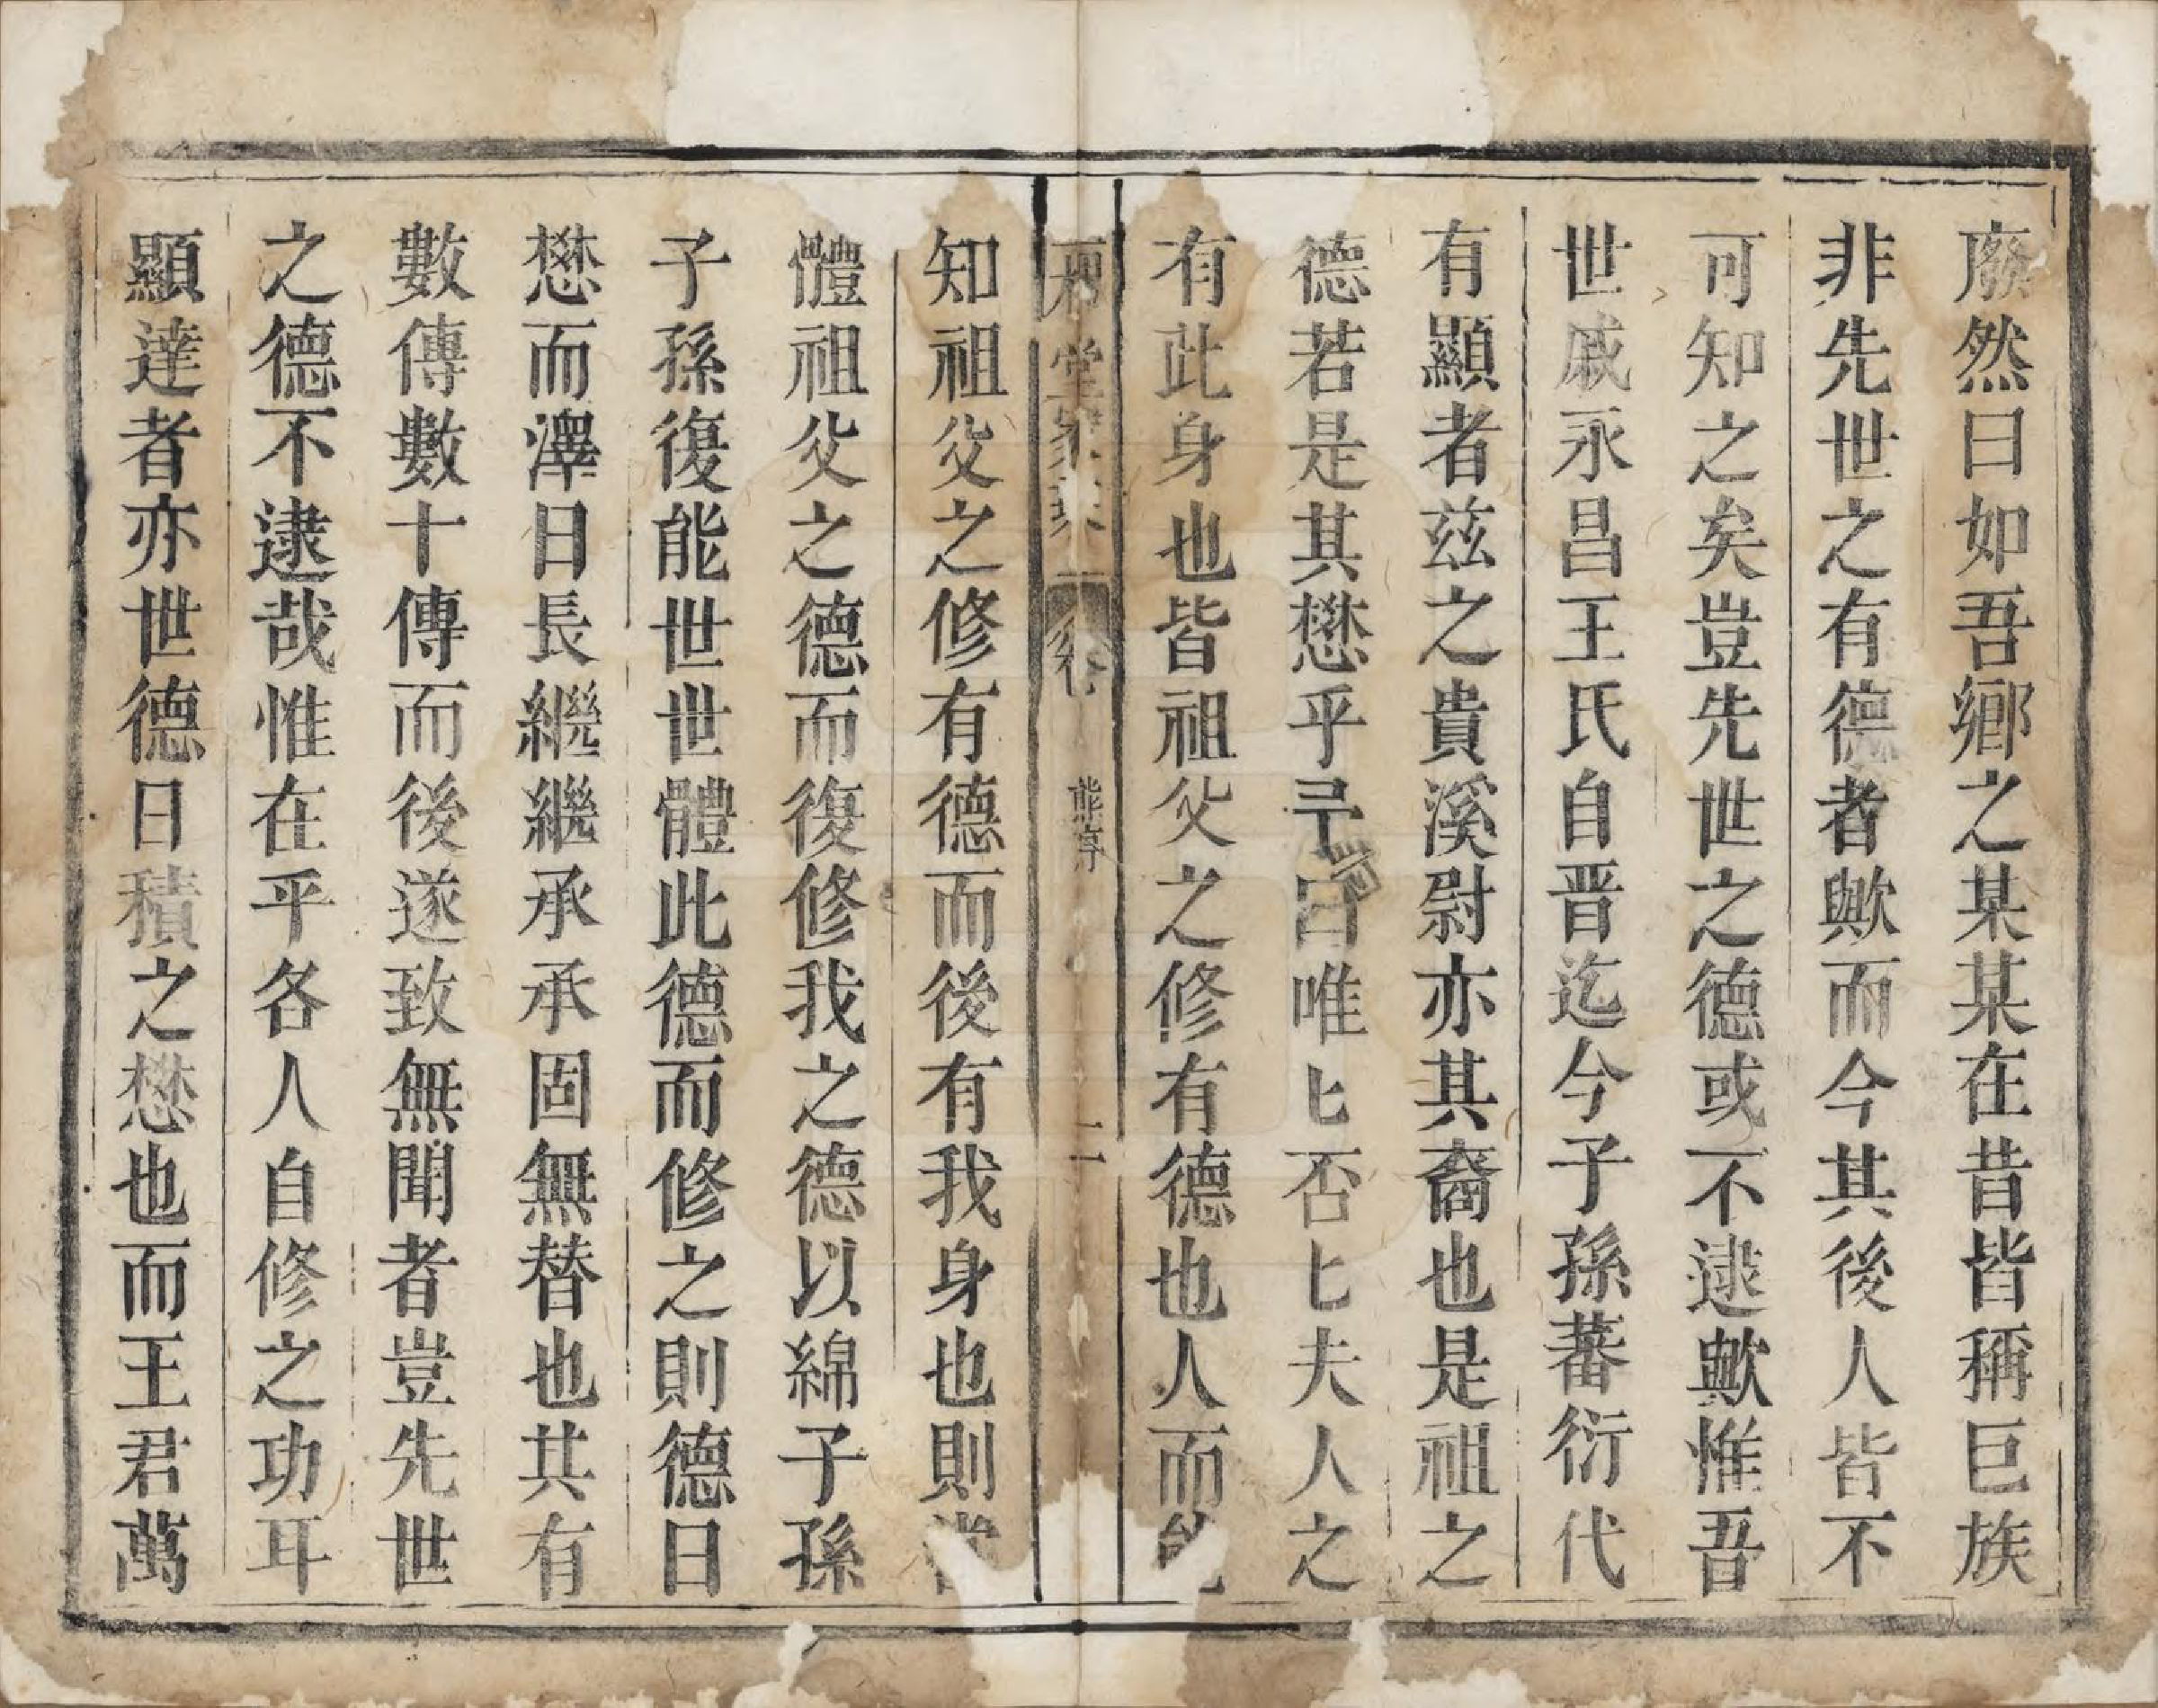 廢然曰如吾鄉之某某在昔皆稱巨族
非先世之有德者歟而今其後人皆不
可知之矣豈先世之德或不逮歟惟吾
世戚永昌王氏自晋迄今子孫蕃衍代
有顯者茲之貴溪尉亦其裔也是祖之
德若是其懋乎弓詞曰唯匕否匕夫人之
有此身也皆祖父之修有德也人而能
堂 卷 熊序 二
知祖父之修有德而後有我身也則當
體祖父之德而復修我之德以綿子孫
子孫復能世世體此德而修之則德日
懋而澤日長繼繼承承固無替也其有
數傳數十傳而後遂致無聞者豈先世
之德不逮哉惟在乎各人自修之功耳
顯達者亦世德日積之懋也而王君萬